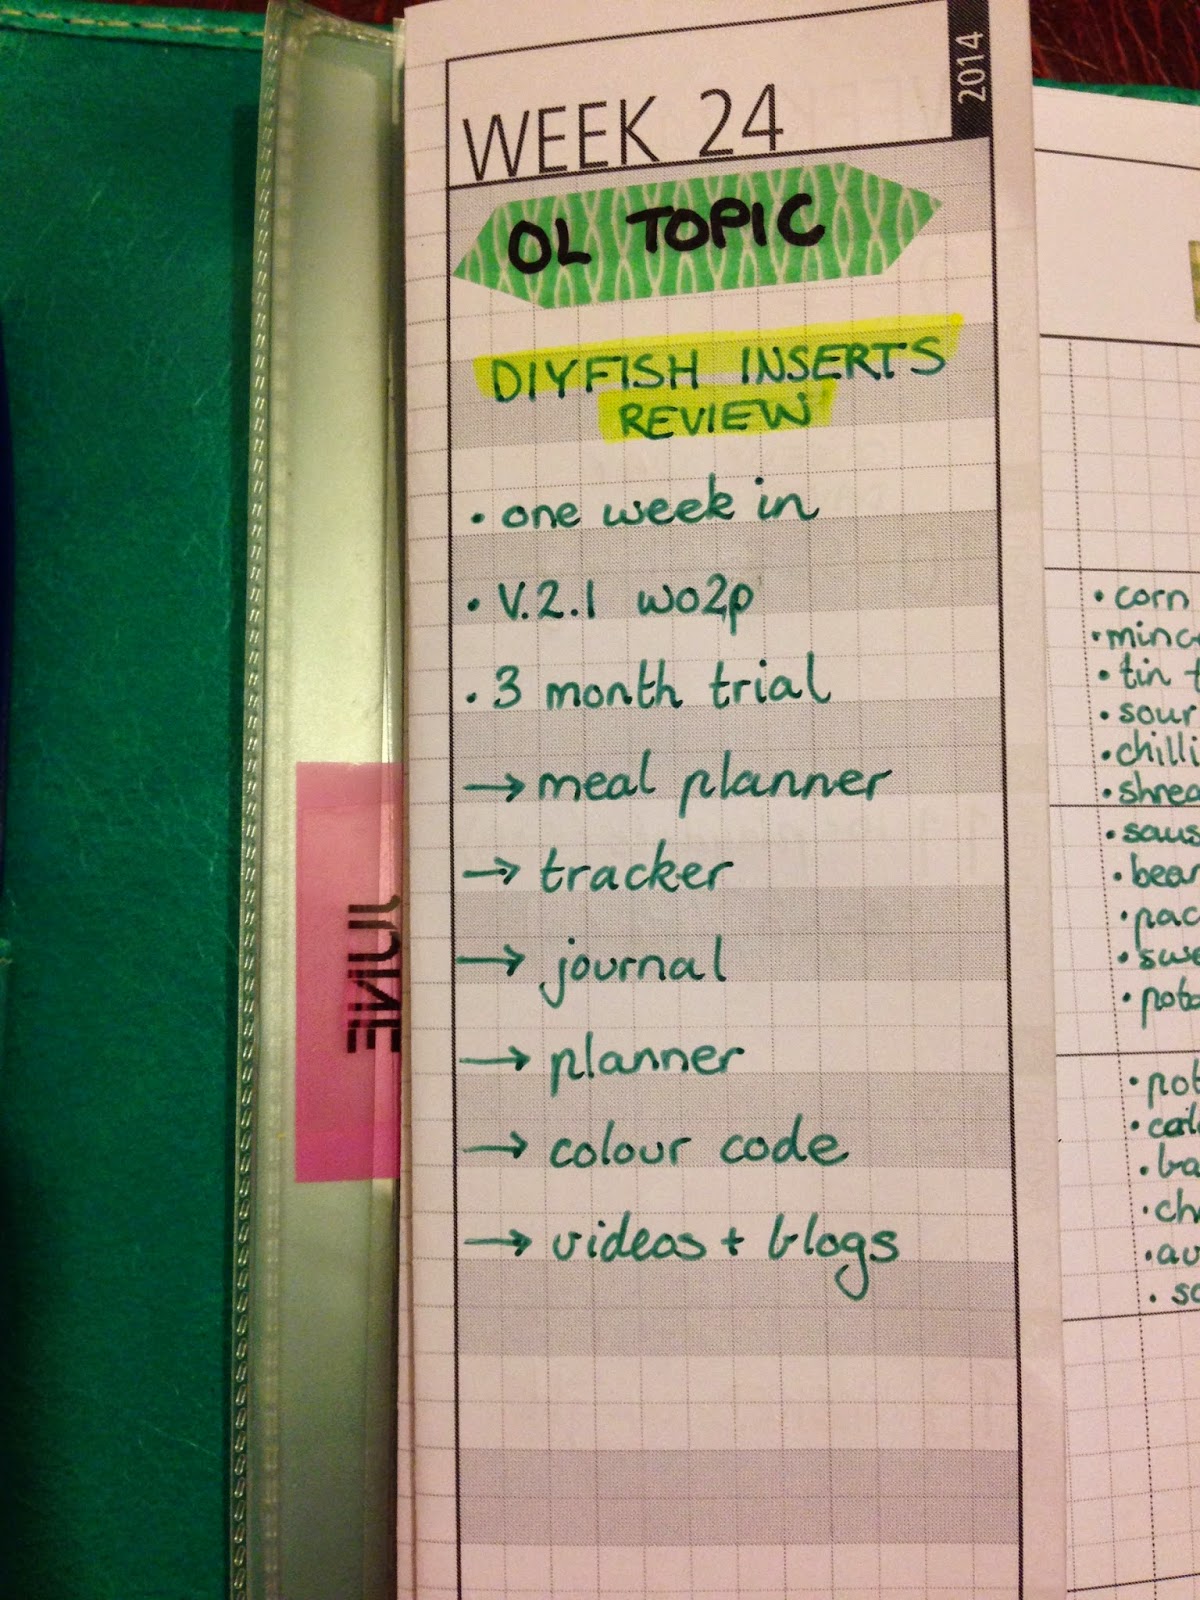 WEEK 24
2014
OL TOPIC
DIYFISH INSERTS
REVIEW
• one week in
• V.2.1 wo2p
• 3 month trial
→ meal planner
→ tracker
→ journal
→ planner
→ colour code
→ videos + blogs
JUNE
• corn
• minc
• tin t
• sour
• chilli
• shrea
• saus
• bear
• pac
• swe
• pota
• pot
• ba
• ch
• av